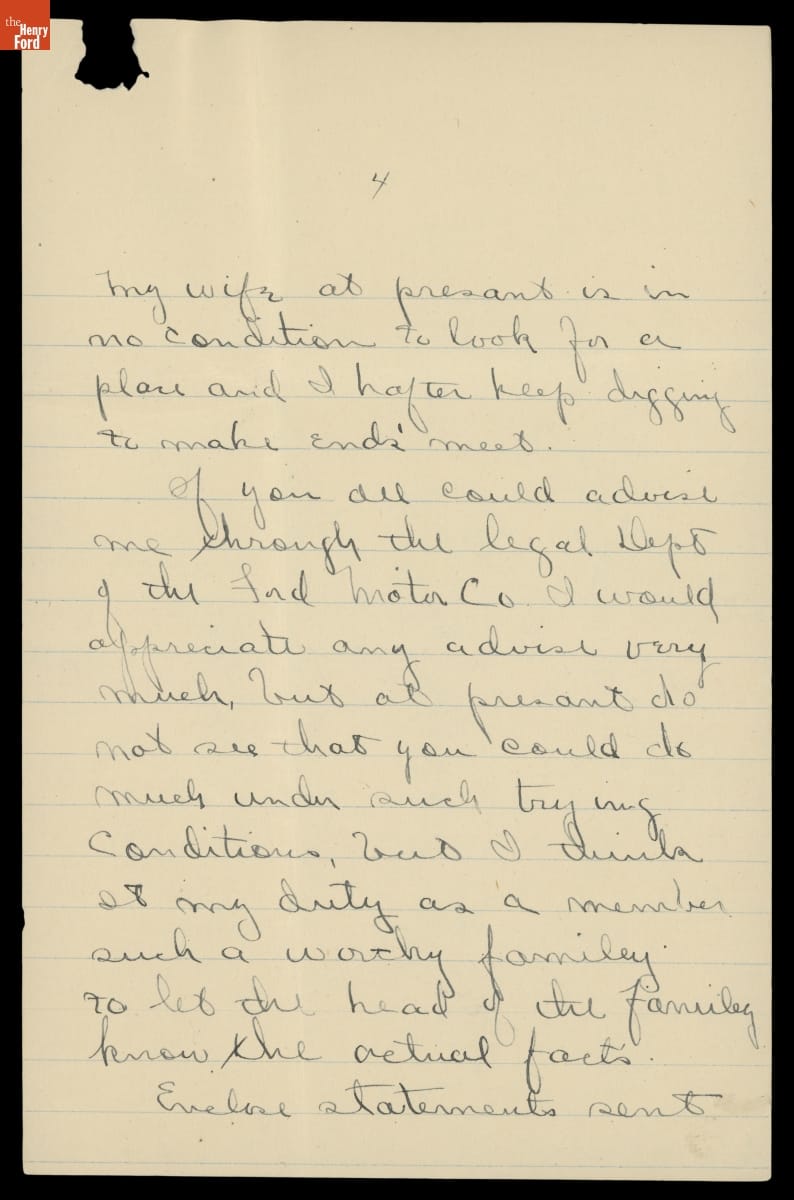 the
Henry
Ford
4
My wife at presant is in
no condition to look for a
place and I hafter keep digging
to make ends' meet.
If you all could advise
me through the legal Dept
of the Ford Motor Co I would
appreciate any advise very
much, but at presant do
not see that you could do
much under such trying
Conditions, but I think
it my duty as a member
such a worthy familey
to let the head of the familey
know the actual facts.
Enclose statements sent